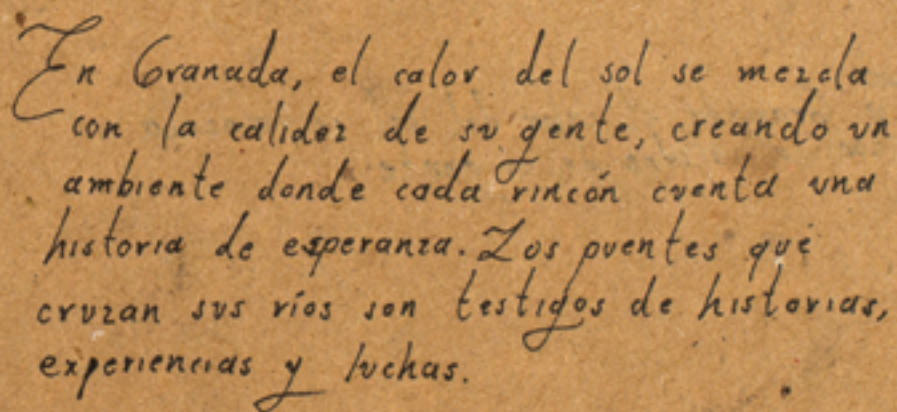 En Granada, el calor del sol se mezcla
con la calidez de su gente, creando un
ambiente donde cada rincón cuenta una
historia de esperanza. Los puentes que
cruzan sus ríos son testigos de historias,
experiencias y luchas.